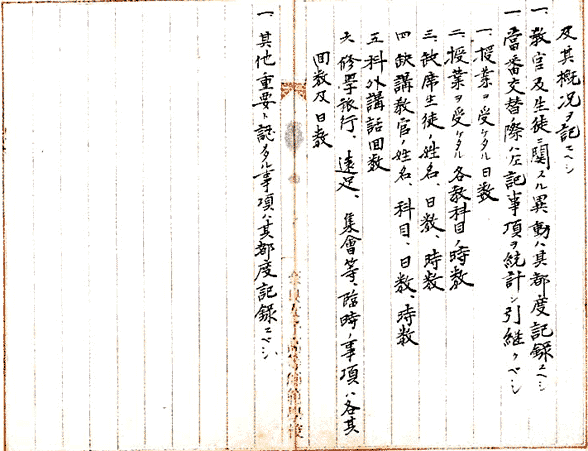 及其概況ヲ記スベシ
一、教官及生徒ニ関スル異動ハ其都度記録スベシ
一、當番交替ノ際ハ左記事項ヲ統計シ引継クベシ
一、授業ヲ受ケタル日数
二、授業ヲ受ケタル各教科目ノ時数
三、缺席生徒ノ姓名、日数、時数
四、缺講教官ノ姓名、科目、日数、時数
五、科外講話回数
六、修學旅行、遠足、集會等、臨時ノ事項ハ各其
回数及日数
一、其他重要ト認メタル事項ハ其都度記録スベシ
女子高等師範學校